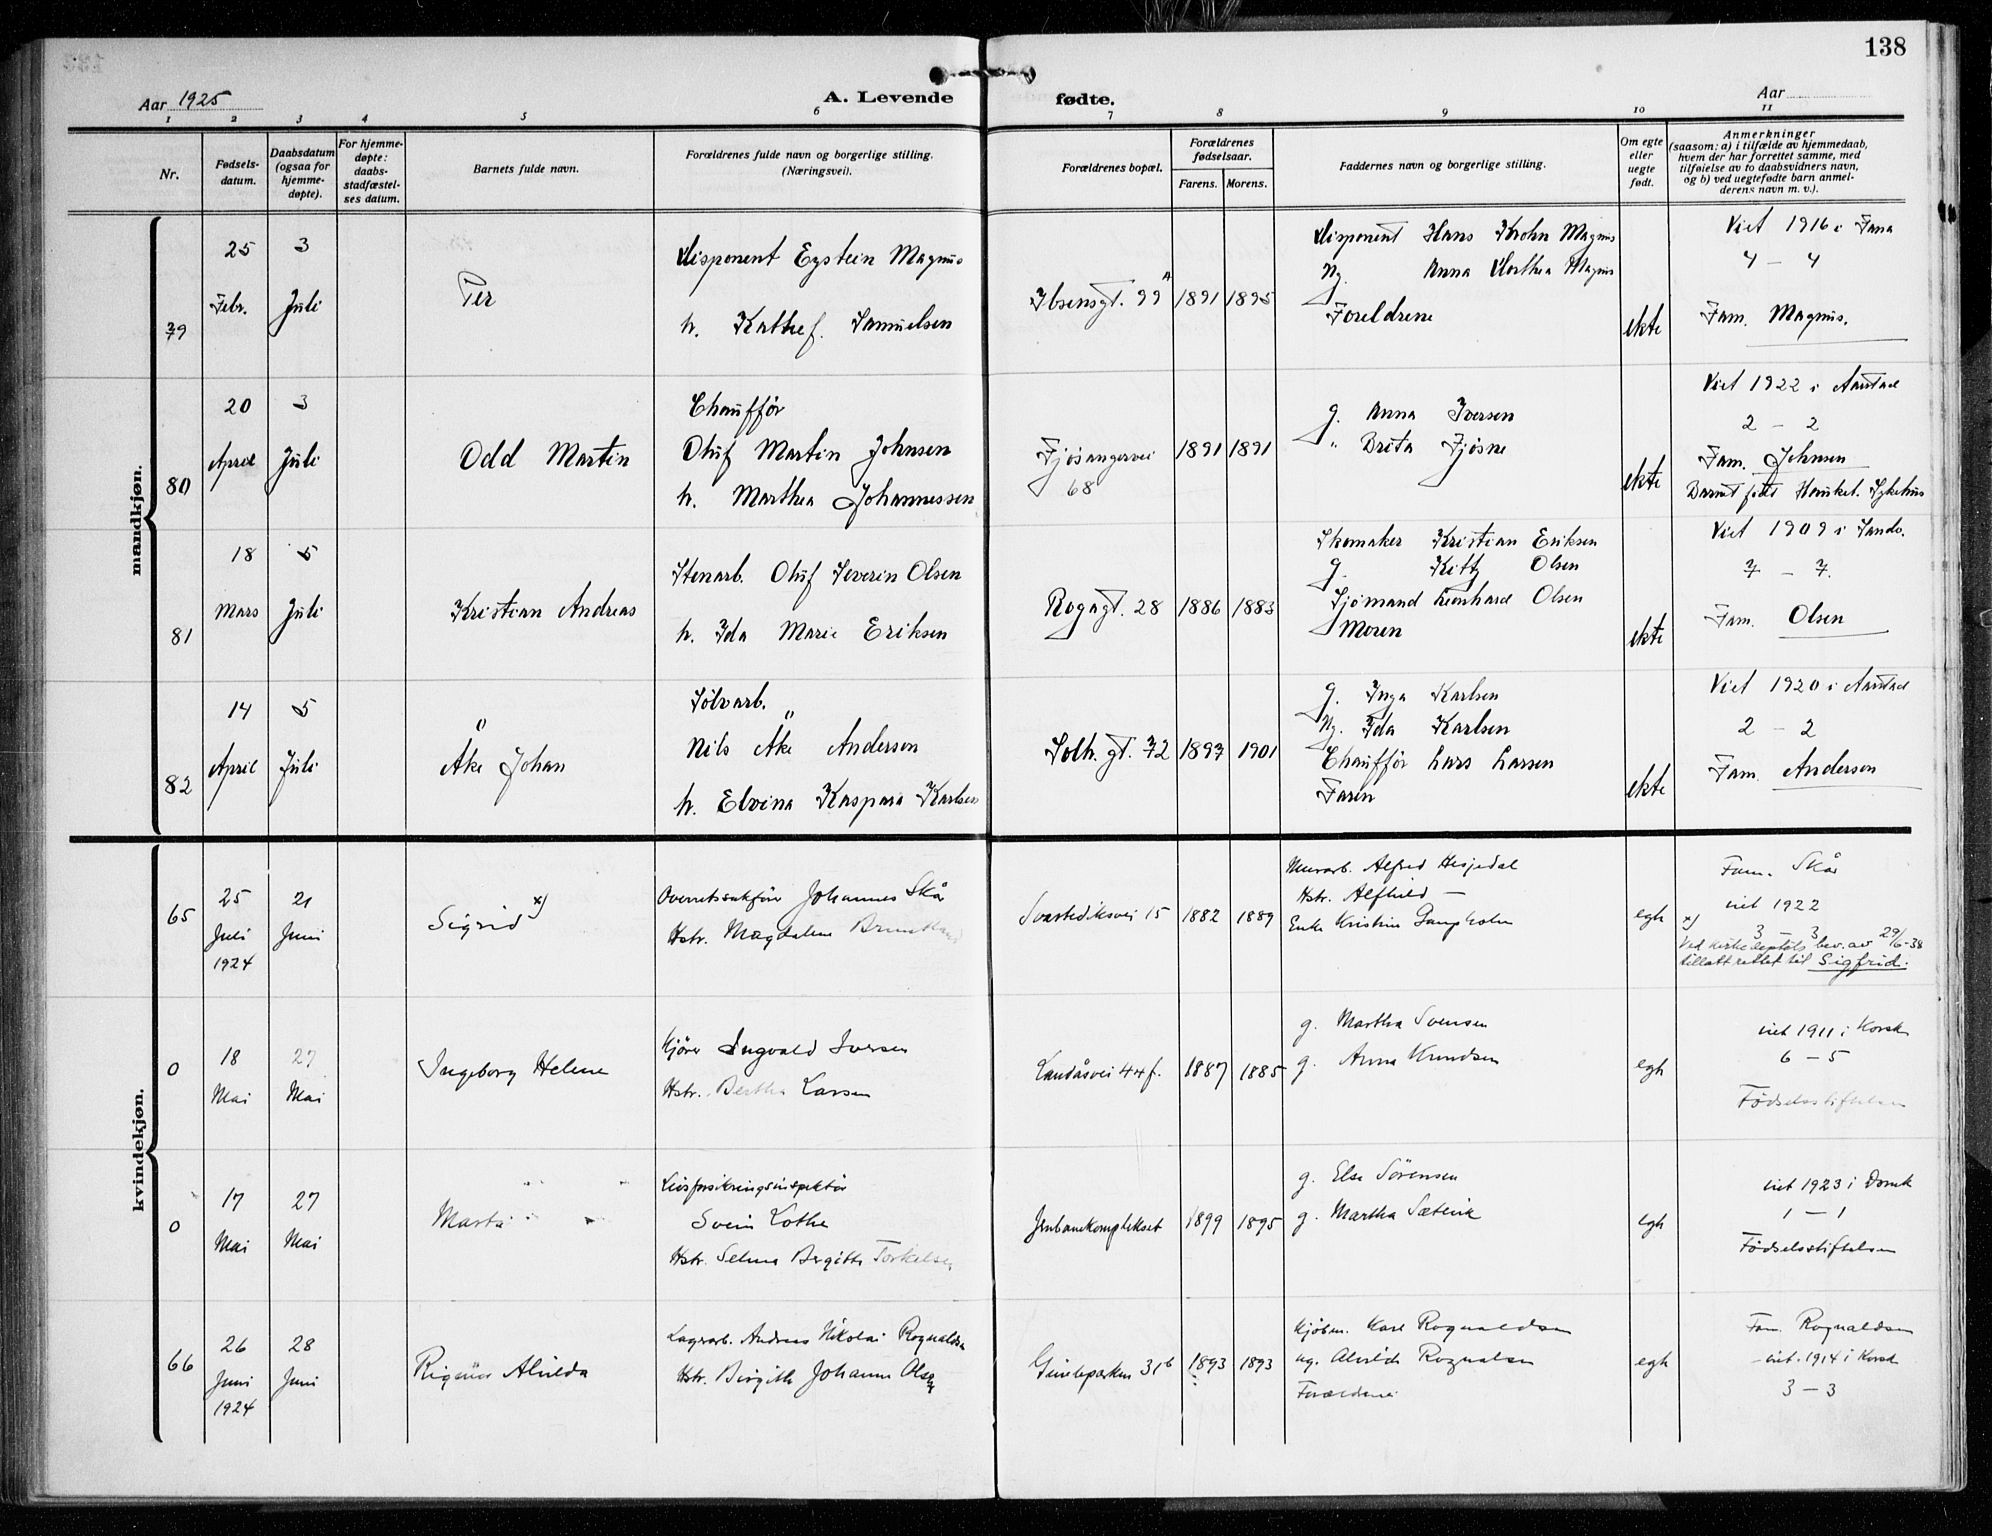 138
Aar 1925
A. Levende fødte.
Aar
1 2 3 4 5 6 7 8 9 10 11
Nr.
Fødsels-
datum.
Daabsdatum
(ogsaa for
hjemme-
døpte).
For hjemme-
døpte:
daabs-
stadfæstel-
ses datum.
Barnets fulde navn.
Forældrenes fulde navn og borgerlige stilling.
(Næringsvei).
Forældrenes bopæl.
Forældrenes
fødselsaar.
Farens. Morens.
Faddernes navn og borgerlige stilling.
Om egte
eller
uegte
født.
Anmerkninger
(saasom: a) i tilfælde av hjemmedaab,
hvem der har forrettet samme, med
tilføielse av to daabsvidners navn,
og b) ved uegtefødte barn anmel-
derens navn m. v.).
mandkjøn.
79
25
Febr.
3
Juli
Per
Disponent Eystein Magnus
h. Kathe f. Samuelsen
Ibsensgt. 99 A
1891 1895
Disponent Hans Krohn Magnus
Ug. Anna Dorthea Magnus
Foreldrene
ekte
Viet 1916 i Fana
4 – 4
Fam. Magnus.
80
20
April
3
Juli
Odd Martin
Chauffør
Oluf Martin Johnsen
h. Marthea Johannessen
Fjøsangervei
68
1891 1891
g. Anna Iversen
" Brita Fjøsne
ekte
Viet 1922 i Aarstad
2 – 2
Fam. Johnsen
Barnet født Haukel. Sykehus
81
18
Mars
5
Juli
Kristian Andreas
Stenarb. Oluf Severin Olsen
h. Ida Marie Eriksen
Rogagt. 28
1886 1883
Skomaker Kristian Eriksen
g. Kitty Olsen
Sjømand Leonhard Olsen
Moren
ekte
Viet 1909 i Sandv.
7 – 7.
Fam. Olsen
82
14
April
5
Juli
Åke Johan
Sølvarb.
Nils Åke Anderson
h. Elvina Kaspara Karlsen
Solh. gt. 72
1897 1901
g. Inga Karlsen
Ug. Ida Karlsen
Chauffør Lars Larsen
Faren
ekte
Viet 1920 i Aarstad
2 – 2
Fam. Anderson
kvindekjøn.
65
25
Juli
1924
21
Juni
Sigrid x)
Overretssakfører Johannes Skår
Hstr. Magdalene
Svartediksvei 15
1882 1889
Murarb. Alfred Hesjedal
Hstr. Alfhild —
Enke Kristine
egh
Fam. Skår
viet 1922
3 – 3
x) Ved kirkedeptets bev. av 29/6-38
tillatt rettet til Sigfrid.
0
18
Mai
27
Mai
Ingeborg Helene
Kjører Ingvald Iversen
Hstr. Bertha Larsen
Landåsvei 44 f.
1887 1885
g. Martha Svensen
g. Anna Knudsen
egh
viet 1911 i Korsk
6 – 5
Fødselsstiftelsen
0
17
Mai
27
Mai
Marta
Livsforsikringsinspektør
Svein Lothe
Hstr. Selma Birgitte Torkelsen
Jernbanekomplekset
1899 1895
g. Else Sörensen
g. Martha Sætevik
egh
viet 1923 i Domk
1 – 1
Fødselsstiftelsen
66
26
Juni
1924
28
Juni
Alvilda
Lagerarb. Andreas Nikolai Rognaldsen
Hstr. Birgitte Johanne Olsen
Gimleparken 31 b
1893 1893
Kjøbm. Karl Rognaldsen
ug. Alvilde Rognaldsen
Forældrene
egh
Fam. Rognaldsen
viet. 1914 i Korsk
3 – 3